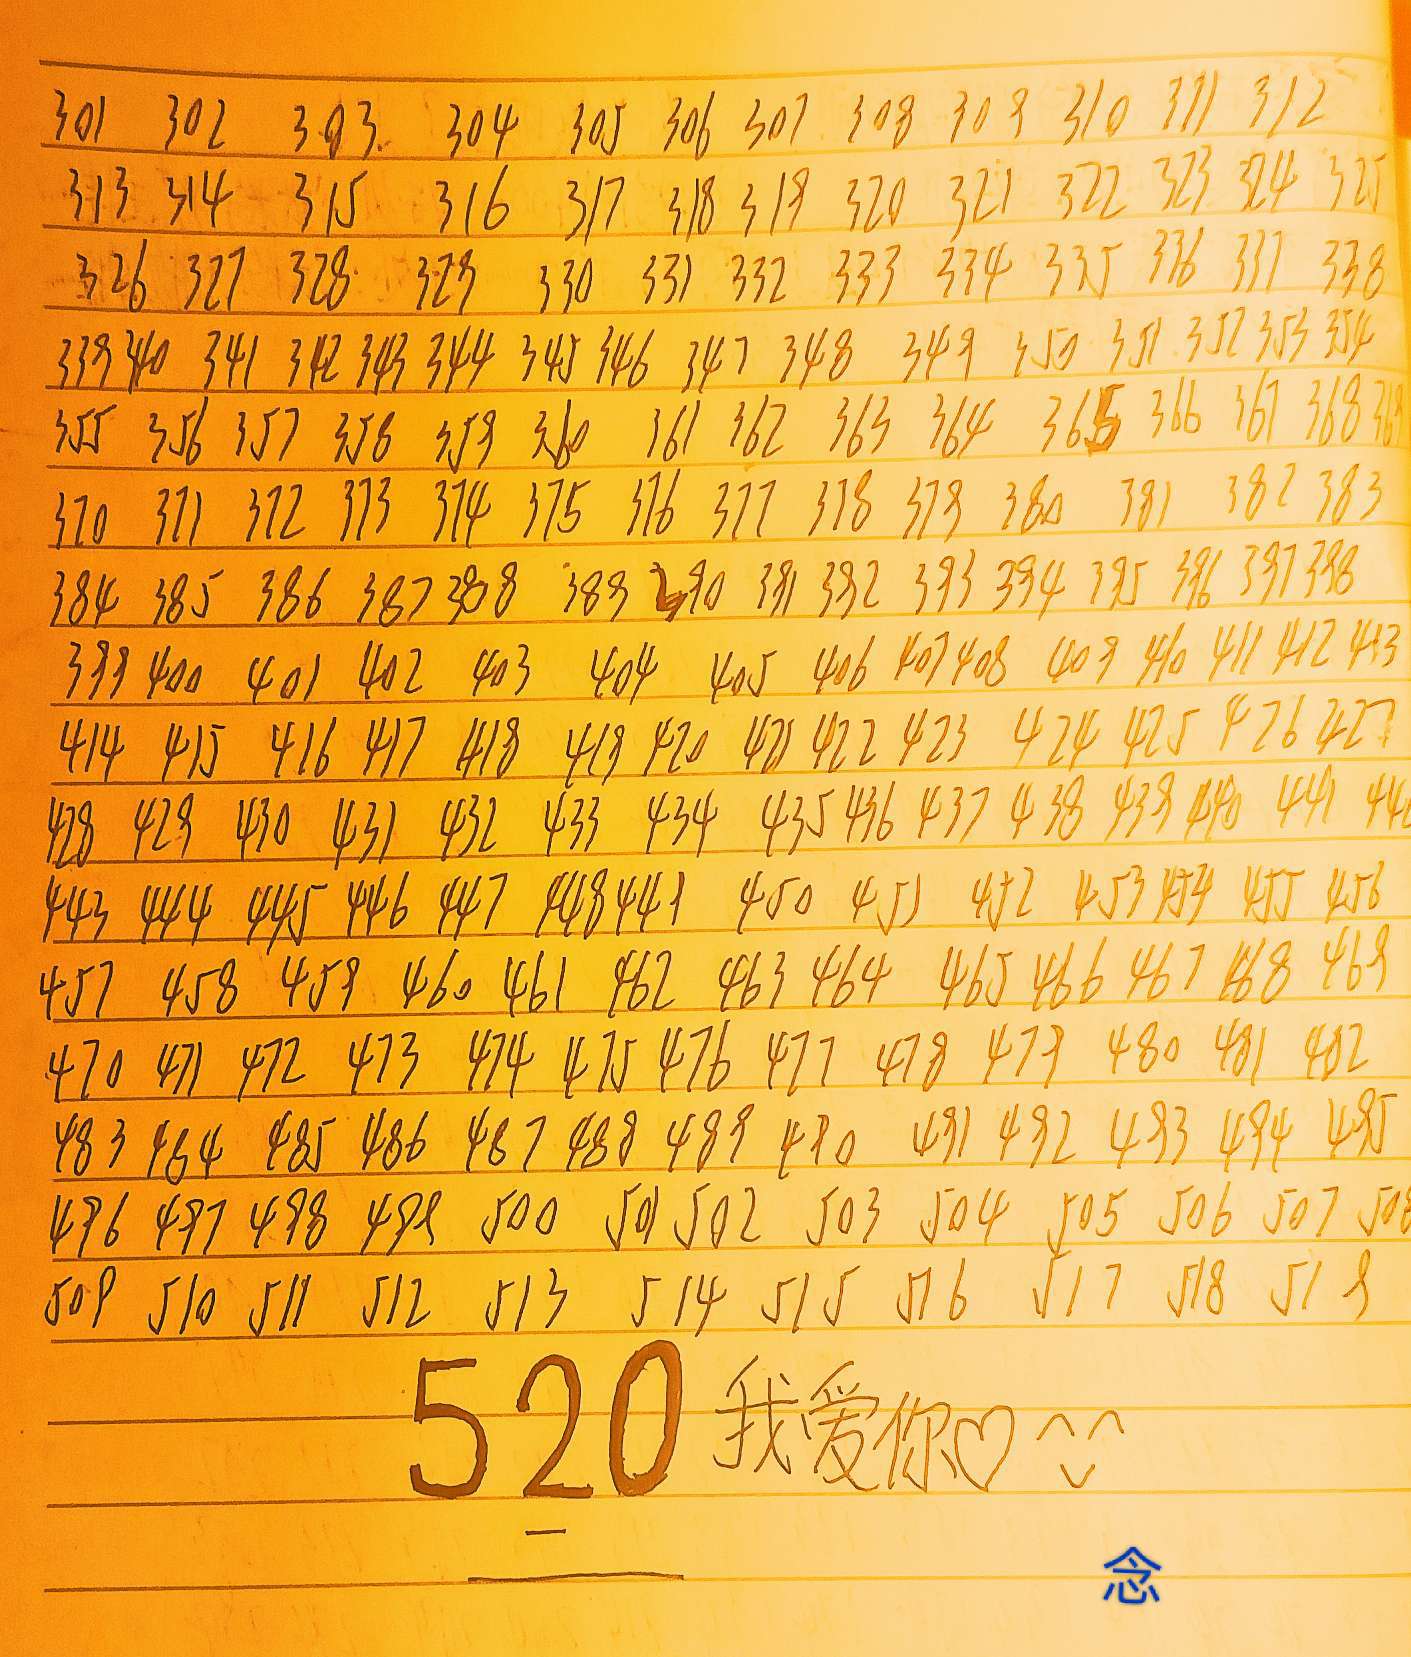 301 302 303 304 305 306 307 308 309 310 311 312
313 314 315 316 317 318 319 320 321 322 323 324 325
326 327 328 329 330 331 332 333 334 335 336 337 338
339 340 341 342 343 344 345 346 347 348 349 350 351 352 353 354
355 356 357 358 359 360 361 362 363 364 365 366 367 368 369
370 371 372 373 374 375 376 377 378 379 380 381 382 383
384 385 386 387 388 389 390 391 392 393 394 395 396 397 398
399 400 401 402 403 404 405 406 407 408 409 410 411 412 413
414 415 416 417 418 419 420 421 422 423 424 425 426 427
428 429 430 431 432 433 434 435 436 437 438 439 440 441
443 444 445 446 447 448 449 450 451 452 453 454 455 456
457 458 459 460 461 462 463 464 465 466 467 468 469
470 471 472 473 474 475 476 477 478 479 480 481 482
483 484 485 486 487 488 489 490 491 492 493 494 495
496 497 498 499 500 501 502 503 504 505 506 507 508
509 510 511 512 513 514 515 516 517 518 519
520 我爱你♡^^
念